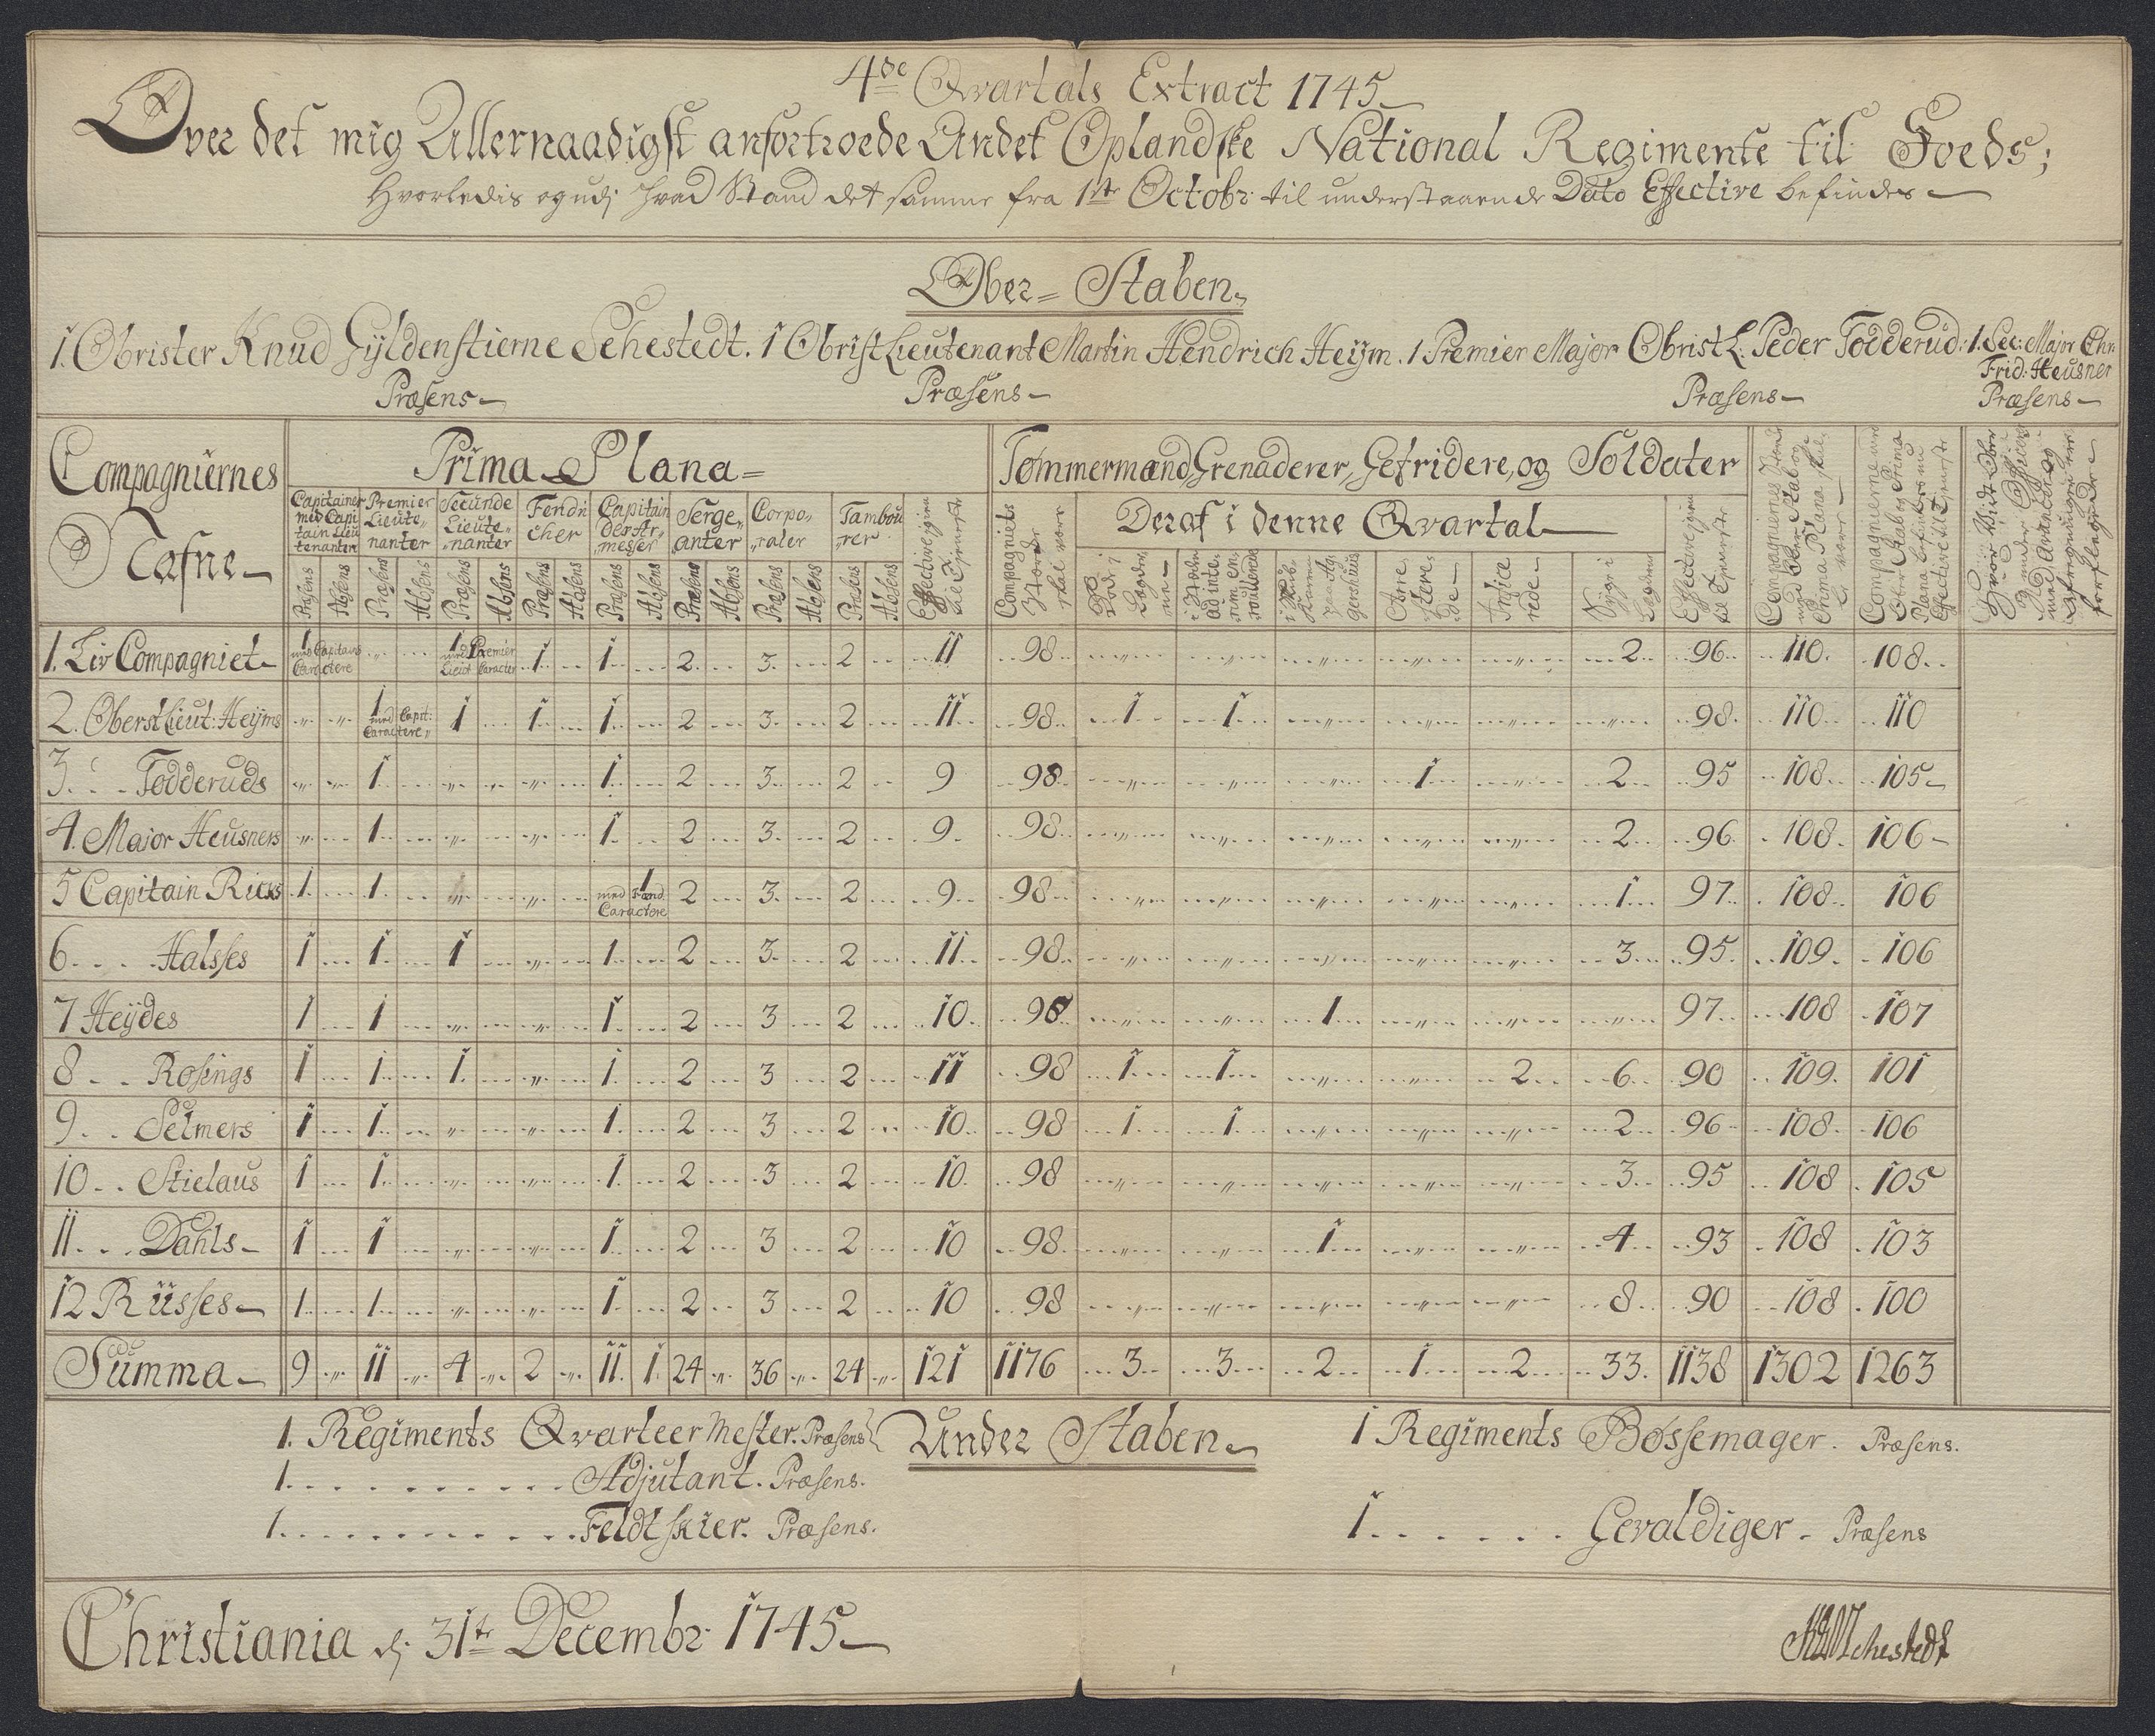 4de Qvartals Extract 1745
Over det mig Allernaadigst anfortroede Andet Oplandske National Regimente til Foeds;
Hvorledis og udj hvad Stand det samme fra 1ste Octobr: til understaaende Dato Effective befindes
Ober= Staben
1. Obrister Knud Gyldenstierne Sehestedt. 1 ObristLieutenant Martin Hendrich Heijm. 1 Premier Major Obrist L: Peder Todderud: 1. Sec: Major Chr:
Frid: Heusner
Præsens Præsens Præsens Præsens
Compagniernes Nafne
Prima Plana=
Tømmermænd, Grenaderer, Gefridere, og Soldater
Capitainer med Capitain Lieutenanter
Premier Lieute„nanter
Secunde Lieute„nanter
Fendricher
Capitain des Ar„messer
Serge„anter
Corpo„raler
Tambou„rer
Effective igien til Tjeneste
Præsens Absens Præsens Absens Præsens Absens Præsens Absens Præsens Absens Præsens Absens Præsens Absens Præsens Absens
Compagniets Storke skal være
Deraf i denne Qvartal
Død i Lægderne
Syge i Lægden
Effective igien til Tjeneste
1. Liv Compagniet 1 med Capitains Caractere 1 med Premier Lieut Caracter 1 1 2 3 2 11 98 2 96 110 108
2. OberstLieut: Heijms 1 med Capit: Caractere 1 1 1 2 3 2 11 98 1 1 98 110 110
3. Todderuds 1 1 2 3 2 9 98 1 2 95 108 105
4. Major Heusners 1 1 2 3 2 9 98 2 96 108 106
5 Capitain Ricks 1 1 1 med Fænd. Caractere 2 3 2 9 98 1 97 108 106
6 Halsses 1 1 1 1 2 3 2 11 98 3 95 109 106
7 Heÿdes 1 1 1 2 3 2 10 98 1 97 108 107
8 Rosings 1 1 1 1 2 3 2 11 98 1 1 2 6 90 109 101
9 Selmers 1 1 1 2 3 2 10 98 1 1 2 96 108 106
10 Stielaus 1 1 1 2 3 2 10 98 3 95 108 105
11 Dahls 1 1 1 2 3 2 10 98 1 4 93 108 103
12 Rüsses 1 1 1 2 3 2 10 98 8 90 108 100
Summa 9 11 4 2 11 1 24 36 24 121 1176 3 3 2 1 2 33 1138 1302 1263
Under Staben
1. Regiments Qvarteer Mester. Præsens 1 Regiments Bøssemager. Præsens.
1. Adjutant. Præsens.
1. Feldtskier. Præsens. 1 Gevaldiger. Præsens
Christiania d: 31te Decembr: 1745
Sehestedt